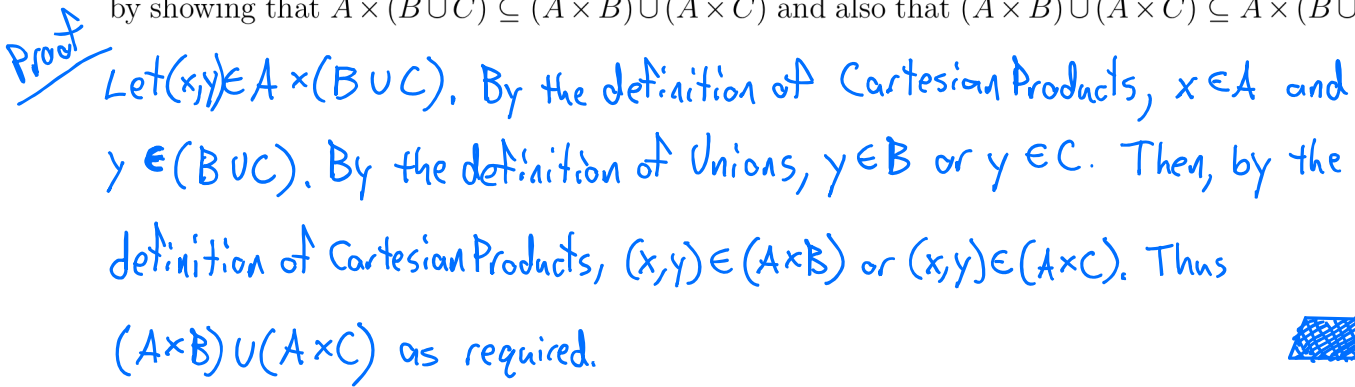 by showing that A × (B ∪ C) ⊆ (A × B) ∪ (A × C) and also that (A × B) ∪ (A × C) ⊆ A × (B ∪
Proof
Let (x,y) ∈ A × (B ∪ C). By the definition of Cartesian Products, x ∈ A and
y ∈ (B ∪ C). By the definition of Unions, y ∈ B or y ∈ C. Then, by the
definition of Cartesian Products, (x,y) ∈ (A×B) or (x,y) ∈ (A×C). Thus
(A×B) ∪ (A×C) as required.